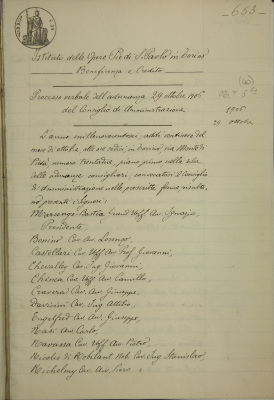 - 653 -
Istituto delle Opere Pie di S. Paolo in Torino
Beneficenza e Credito
Processo verbale dell'adunanza 29 ottobre 1906
del Consiglio di Amministrazione
1906
29 ottobre
L'anno millenovecentosei, addì ventinove del
mese di ottobre, alle ore sedici, in Torino, via Monte di
Pietà, numero trentadue, piano primo nella sala
delle adunanze consigliari, convocatosi il Consiglio
di amministrazione nelle prescritte forme, sonvi
presenti i Signori:
Marsengo Bastia Grand'Uff. Avv. Ignazio,
Presidente
Bonino Cav. Avv. Lorenzo,
Castellari Cav. Uff. Avv. Prof. Giovanni,
Chevalley Cav. Ing. Giovanni,
Chiesa Cav. Uff. Avv. Camillo,
Cravero Cav. Avv. Giuseppe,
Daviesini Cav. Ing. Attilio,
Engelfred Cav. Avv. Giuseppe,
Nasi Avv. Carlo,
Ravassa Cav. Uff. Avv. Pietro
Nicolis di Robilant Nob. Cav. Ing. Stanislao,
Richelmy Cav. Avv. Piero